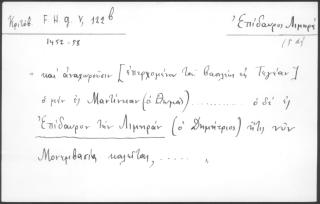 Κριτόβ. F. H. g. V, 122b
Ἐπίδαυρος Λιμηρά
1452-58
καὶ ἀναχωροῦσιν [ἐπερχομένου τοῦ βασιλέως ἐς Τεγέαν]
ὁ μὲν ἐς Μαντίνειαν (ὁ Θωμᾶς) .......... ὁ δὲ ἐς
Ἐπίδαυρον τὴν Λιμηρὰν (ὁ Δημήτριος) ἥτις νῦν
Μονεμβασία καλεῖται, ......